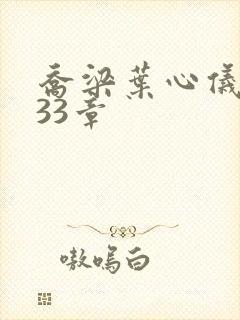 乔梁葉心儀
33章
嗷嗚白